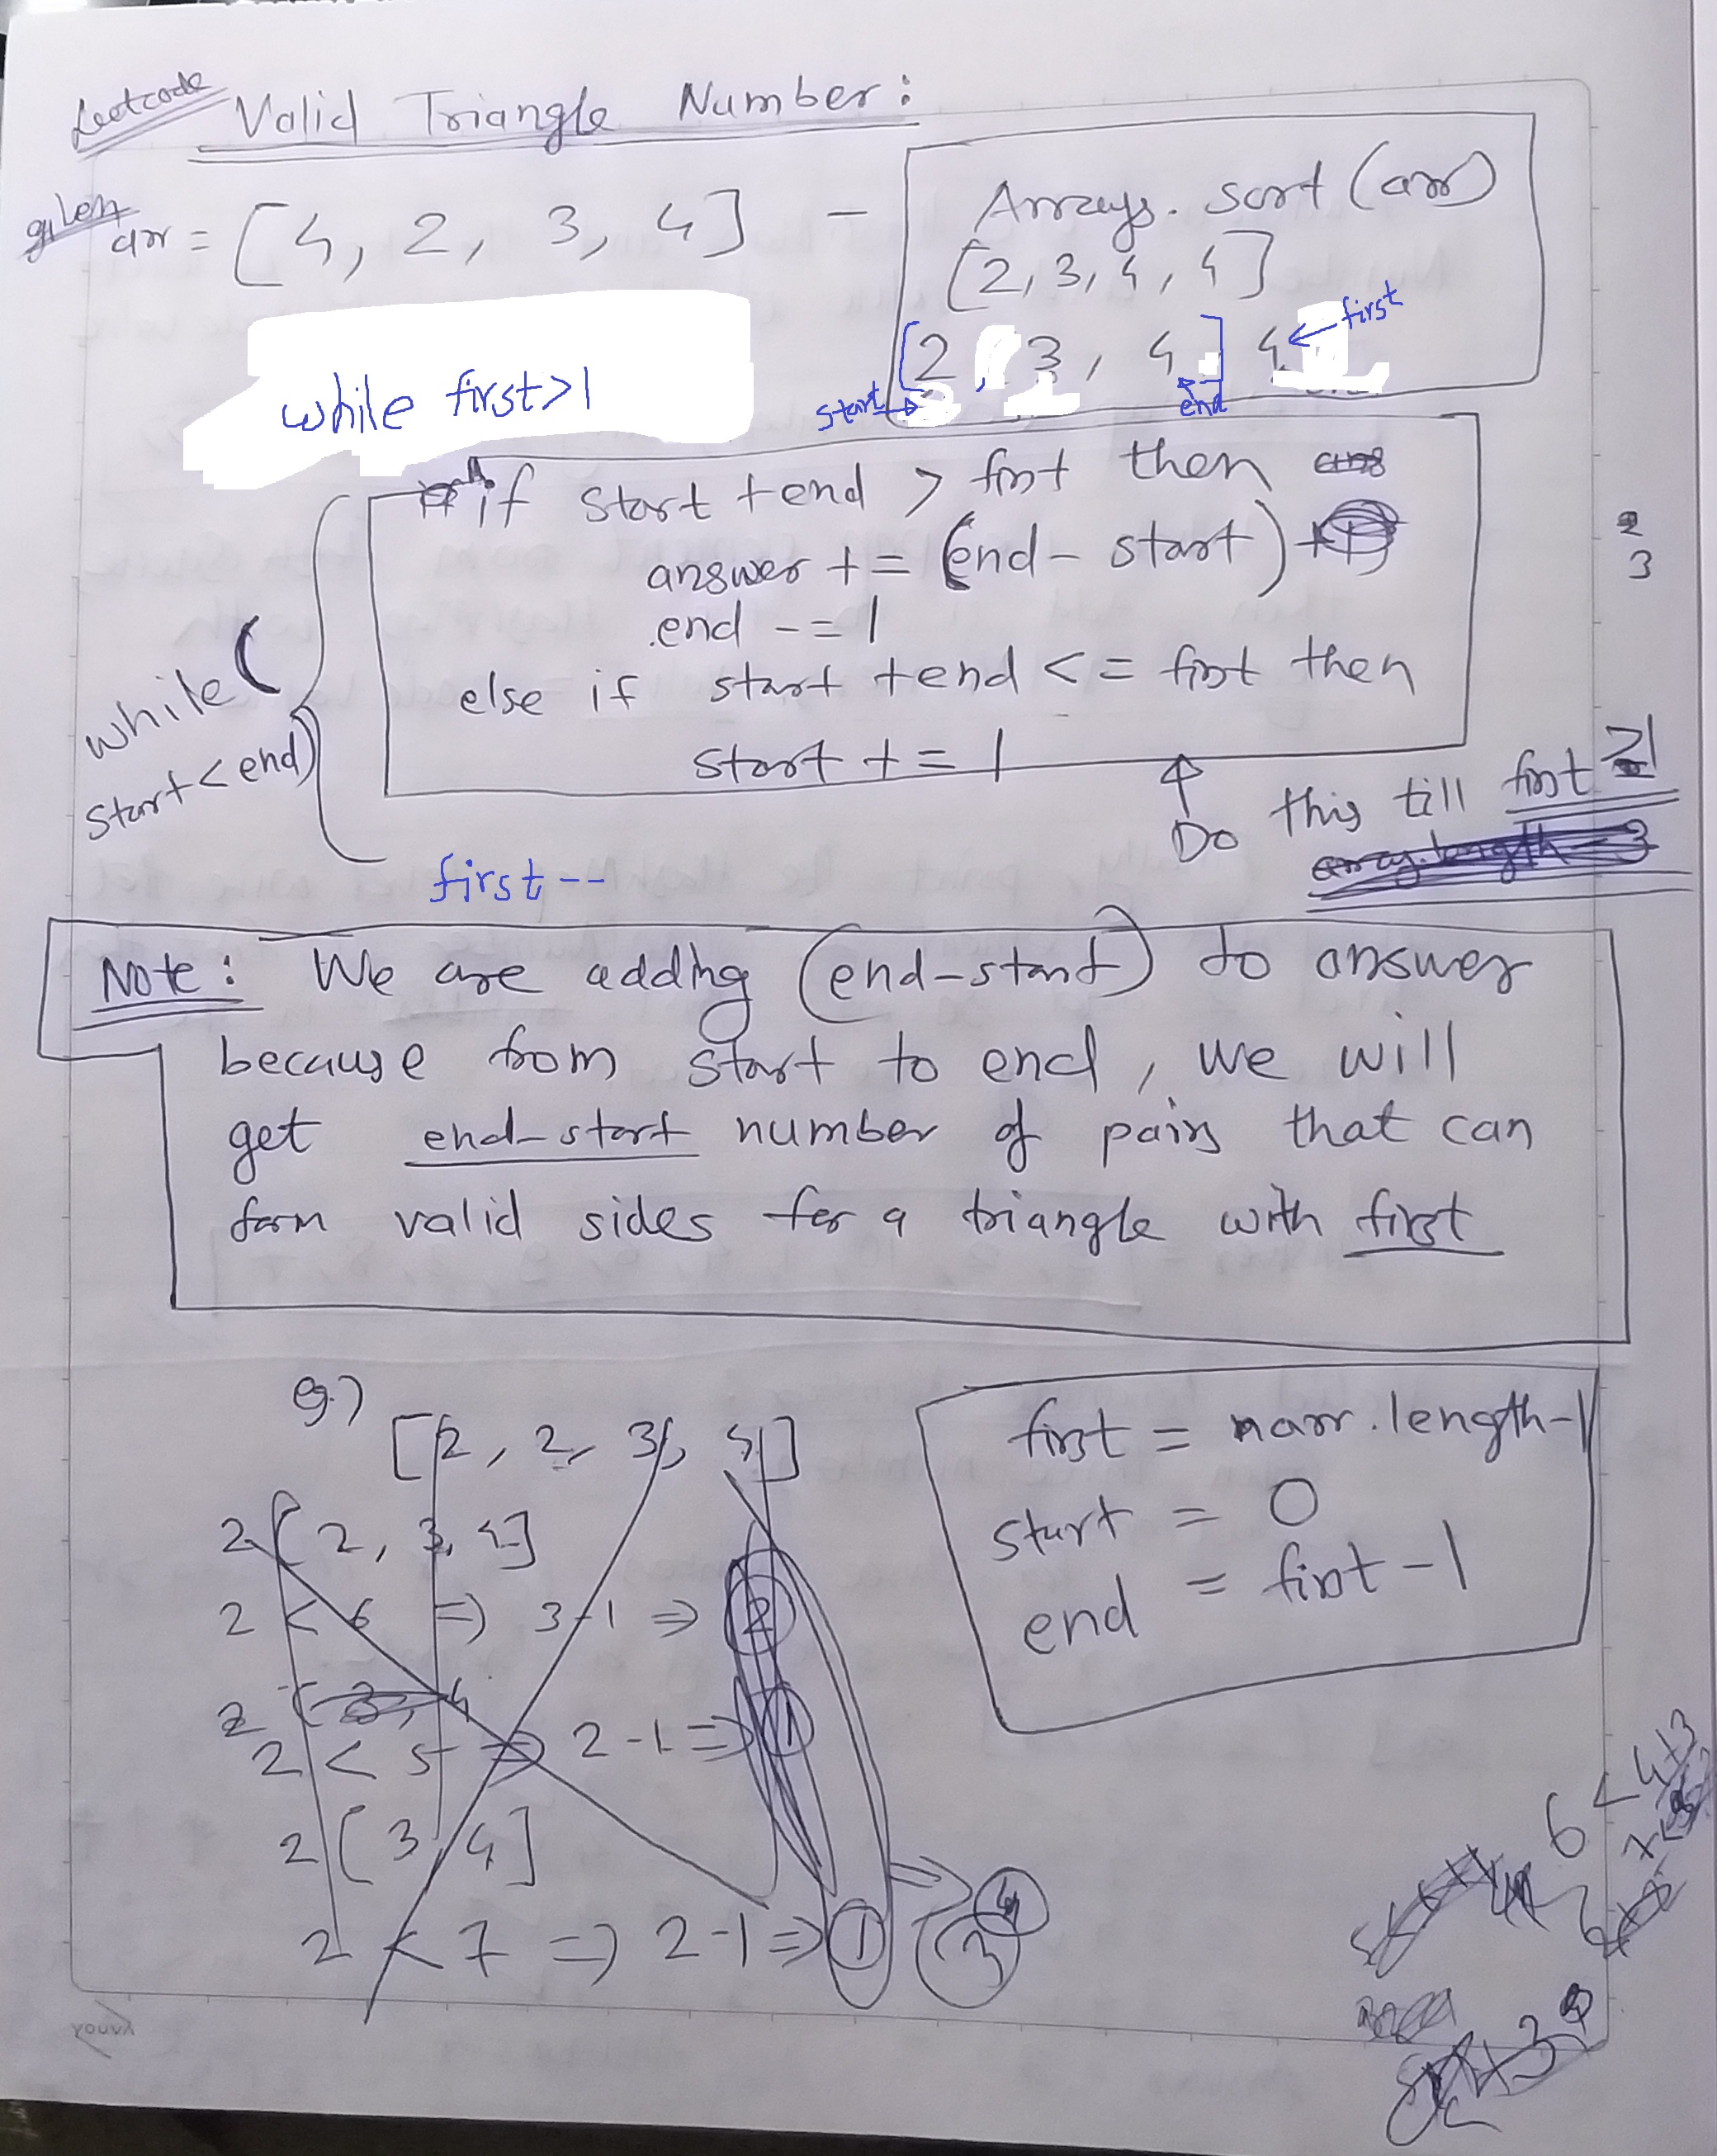 Leetcode Valid Triangle Number:
given arr = [4, 2, 3, 4] -
Arrays.sort(arr)
[2,3,4,4]
[2, 3, 4] 4 ← first
start end
while first>1
if start + end > first then
answer += (end - start)
end -= 1
else if start + end <= first then
start += 1
while (start < end)
2
3
Do this till first >1
first--
Note: We are adding (end-start) to answer
because from start to end, we will
get end-start number of pairs that can
form valid sides for a triangle with first
eg.)
[2, 2, 3, 4]
2 [2, 3, 4]
2 < 6 => 3-1 => 2
2 < 5 => 2-1 => 1
2 [3, 4]
2 < 7 => 2-1 => 1
3
first = arr.length-1
start = 0
end = first-1
6 < 4+3